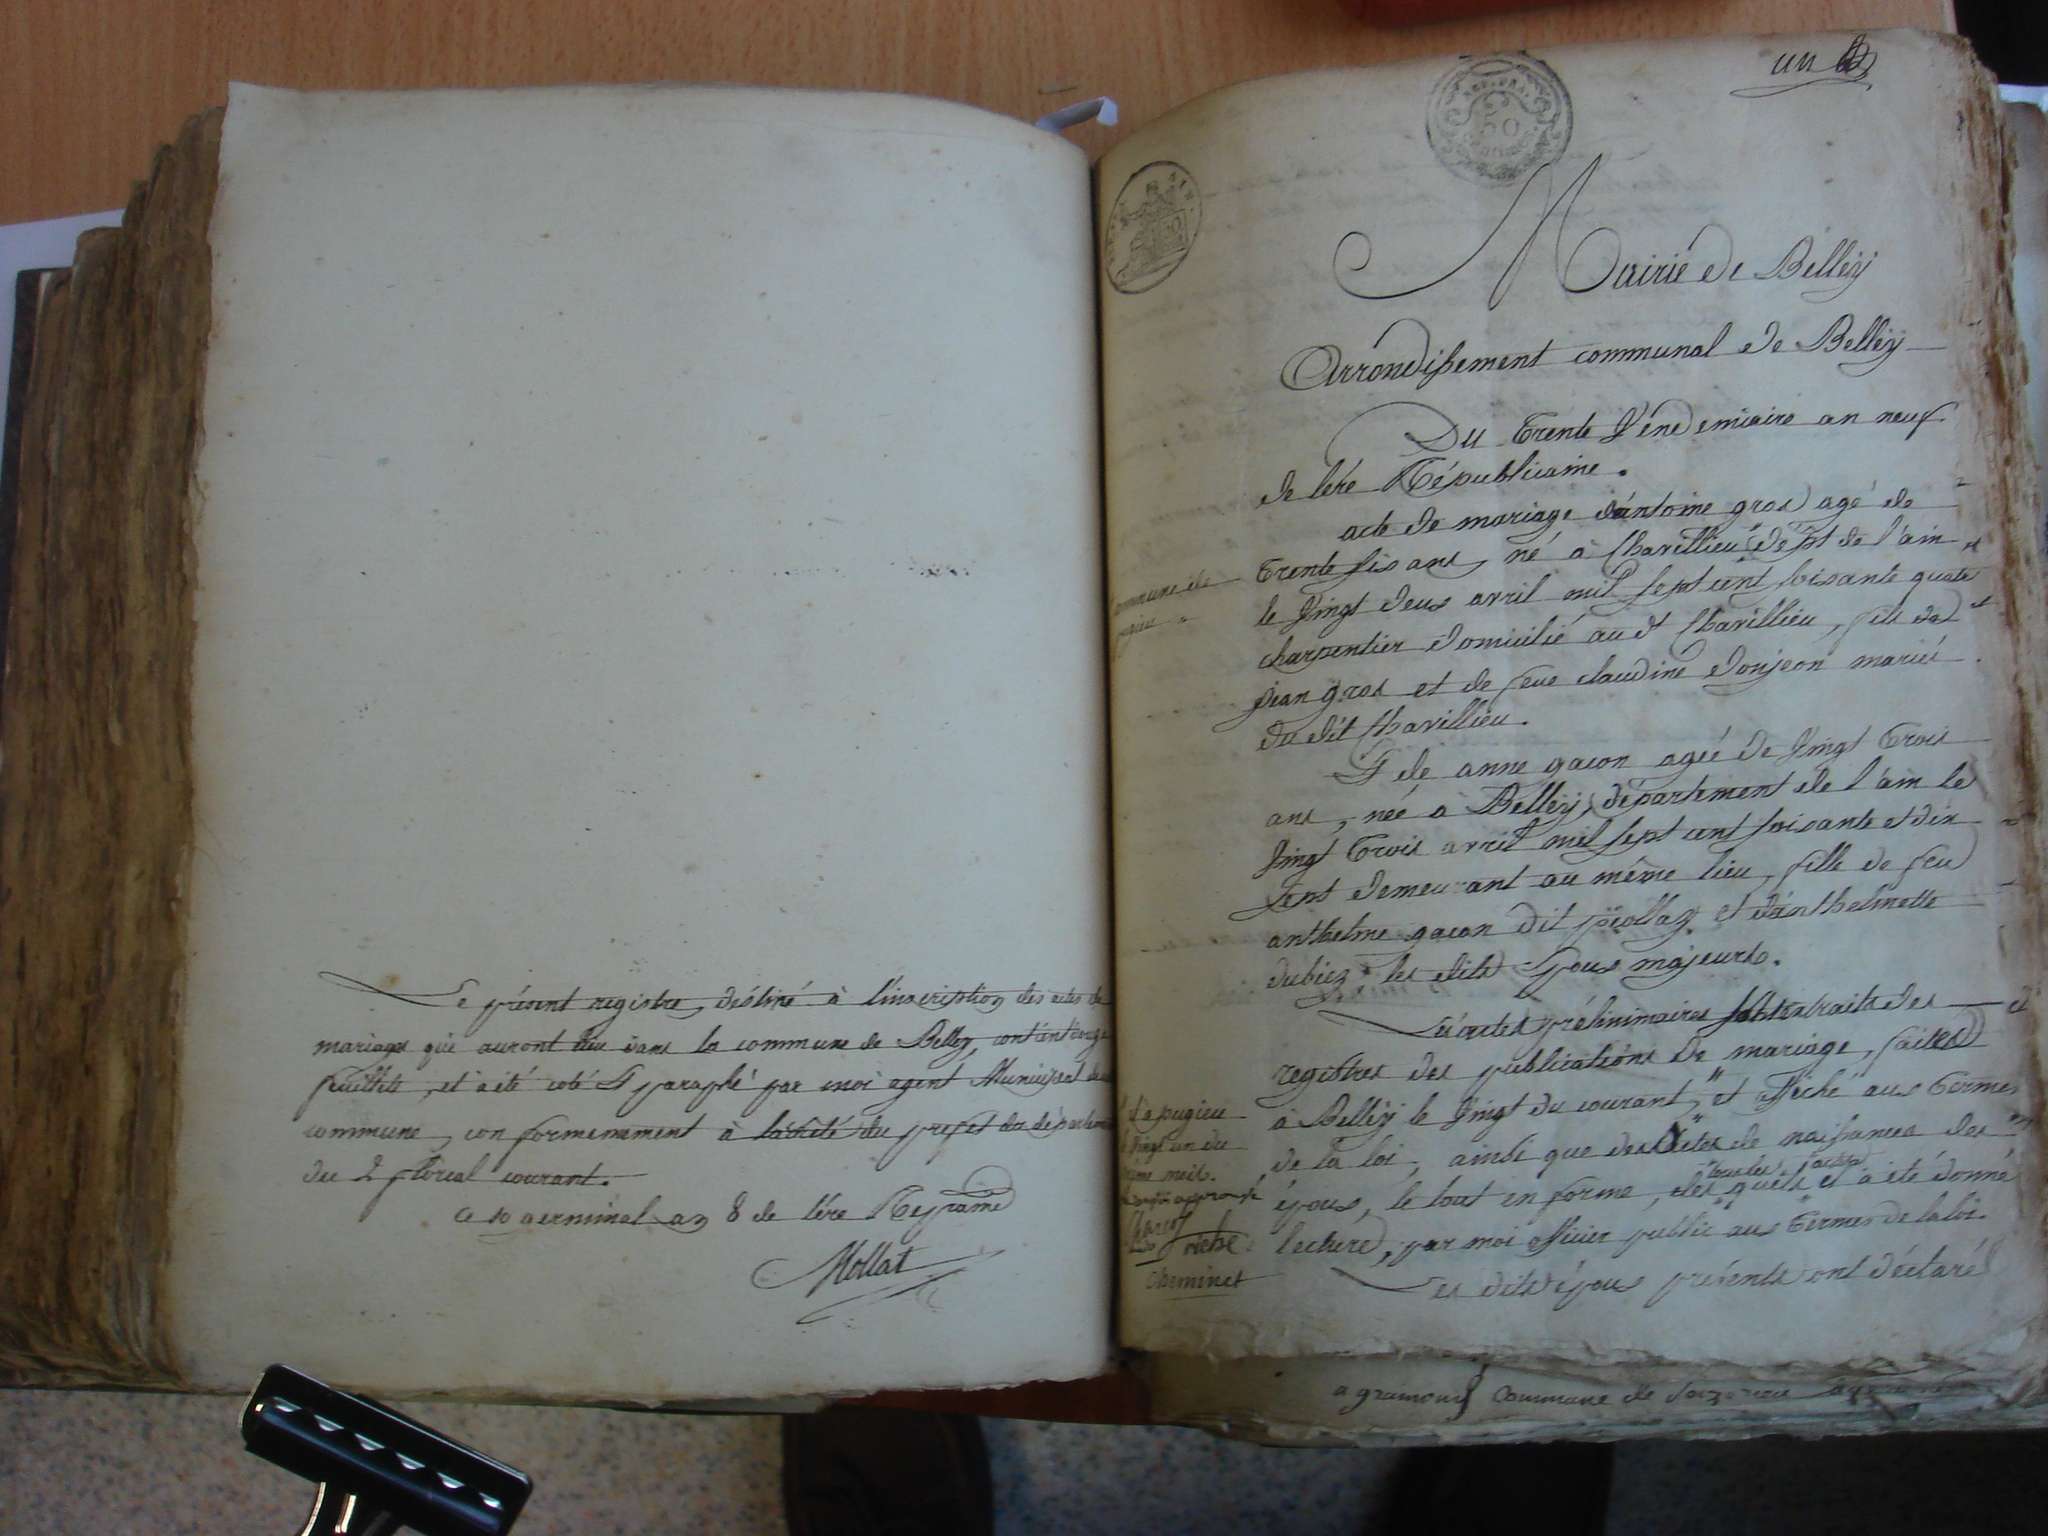 Le présent registre, déstiné à l'inscription des actes de
mariages qui auront lieu dans la commune de Belley, contient
feuillets, et a été coté & paraphé par moi agent Municipal de
commune, conformemement à l'arreté du prefet du départem
du 2 floreal courant.
Ce 10 germinal an 8 de l'ére Rep.caine
Mollat
un
Mairie de Belley
Arrondissement communal de Belley
Du trente Vendemiaire an neuf
de l'ére Républicaine.
acte de mariage d'antoine gros agé de
trente six ans, né à Chavillieu " dép.t de l'ain
commune de
pugieu
le vingt deux avril mil sept cent soixante quatre
charpentier domicilié aud.t Chavillieu, fils de
jean gros et de feue claudine donjeon mariés
du dit Chavillieu.
& de anne gacon agée de vingt trois
ans, née à Belley, département de l'ain le
vingt trois avril mil sept cent soixante et dix
sept demeurant au même lieu, fille de feu
anthelme gacon dit piollaz et d'anthelmette
dubiez; les dits Epoux majeurs.
Les actes préliminaires sont extraits des
registres des publications de mariage, faites
à Belley le vingt du courant, " et affiché aux termes
de la loi, ainsi que des actes de naissances des
époux, le tout en forme, des quels " tous les actes " il a été donné
lecture, par moi officier public aux termes de la loi.
Les dits époux présents ont déclaré
& à pugieu
le vingt un du
même mois.
approuvé
riche
Cheminet
a gramond commune de